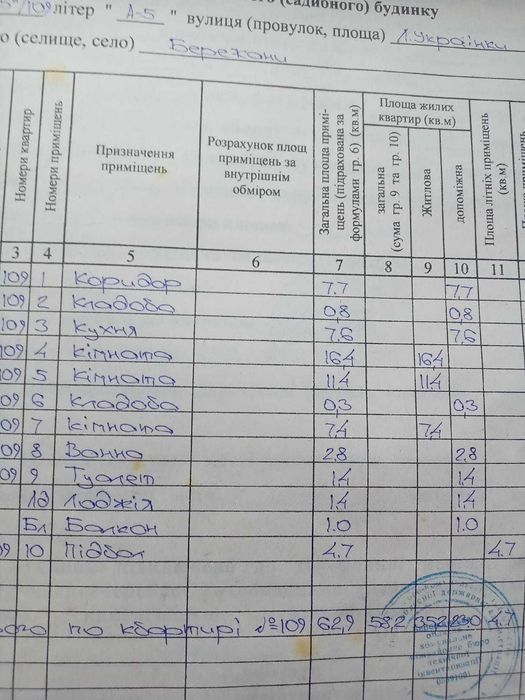 (садибного) будинку
109 літер " А-5 " вулиця (провулок, площа) Л.Українки
о (селище, село) Бережани
Номери квартир
Номери приміщень
Призначення приміщень
Розрахунок площ приміщень за внутрішнім обміром
Загальна площа приміщень (підрахована за формулами гр. 6) (кв.м)
Площа жилих квартир (кв.м)
загальна (сума гр. 9 та гр. 10)
Житлова
допоміжна
Площа літніх приміщень (кв.м)
3 4 5 6 7 8 9 10 11
109 1 Коридор 7.7 7,7
109 2 Кладова 0,8 0,8
109 3 Кухня 7,6 7,6
109 4 Кімната 16,4 16,4
109 5 Кімната 11,4 11,4
09 6 Кладова 0,3 0,3
09 7 Кімната 7,4 7,4
09 8 Ванна 2,8 2,8
09 9 Туалет 1,4 1,4
Лд Лоджія 1,4 1,4
Бл Балкон 1.0 1.0
09 10 Підвал 4.7 4.7
ього по квартирі №109 62,9 58,2 35,2 23,0 4.7